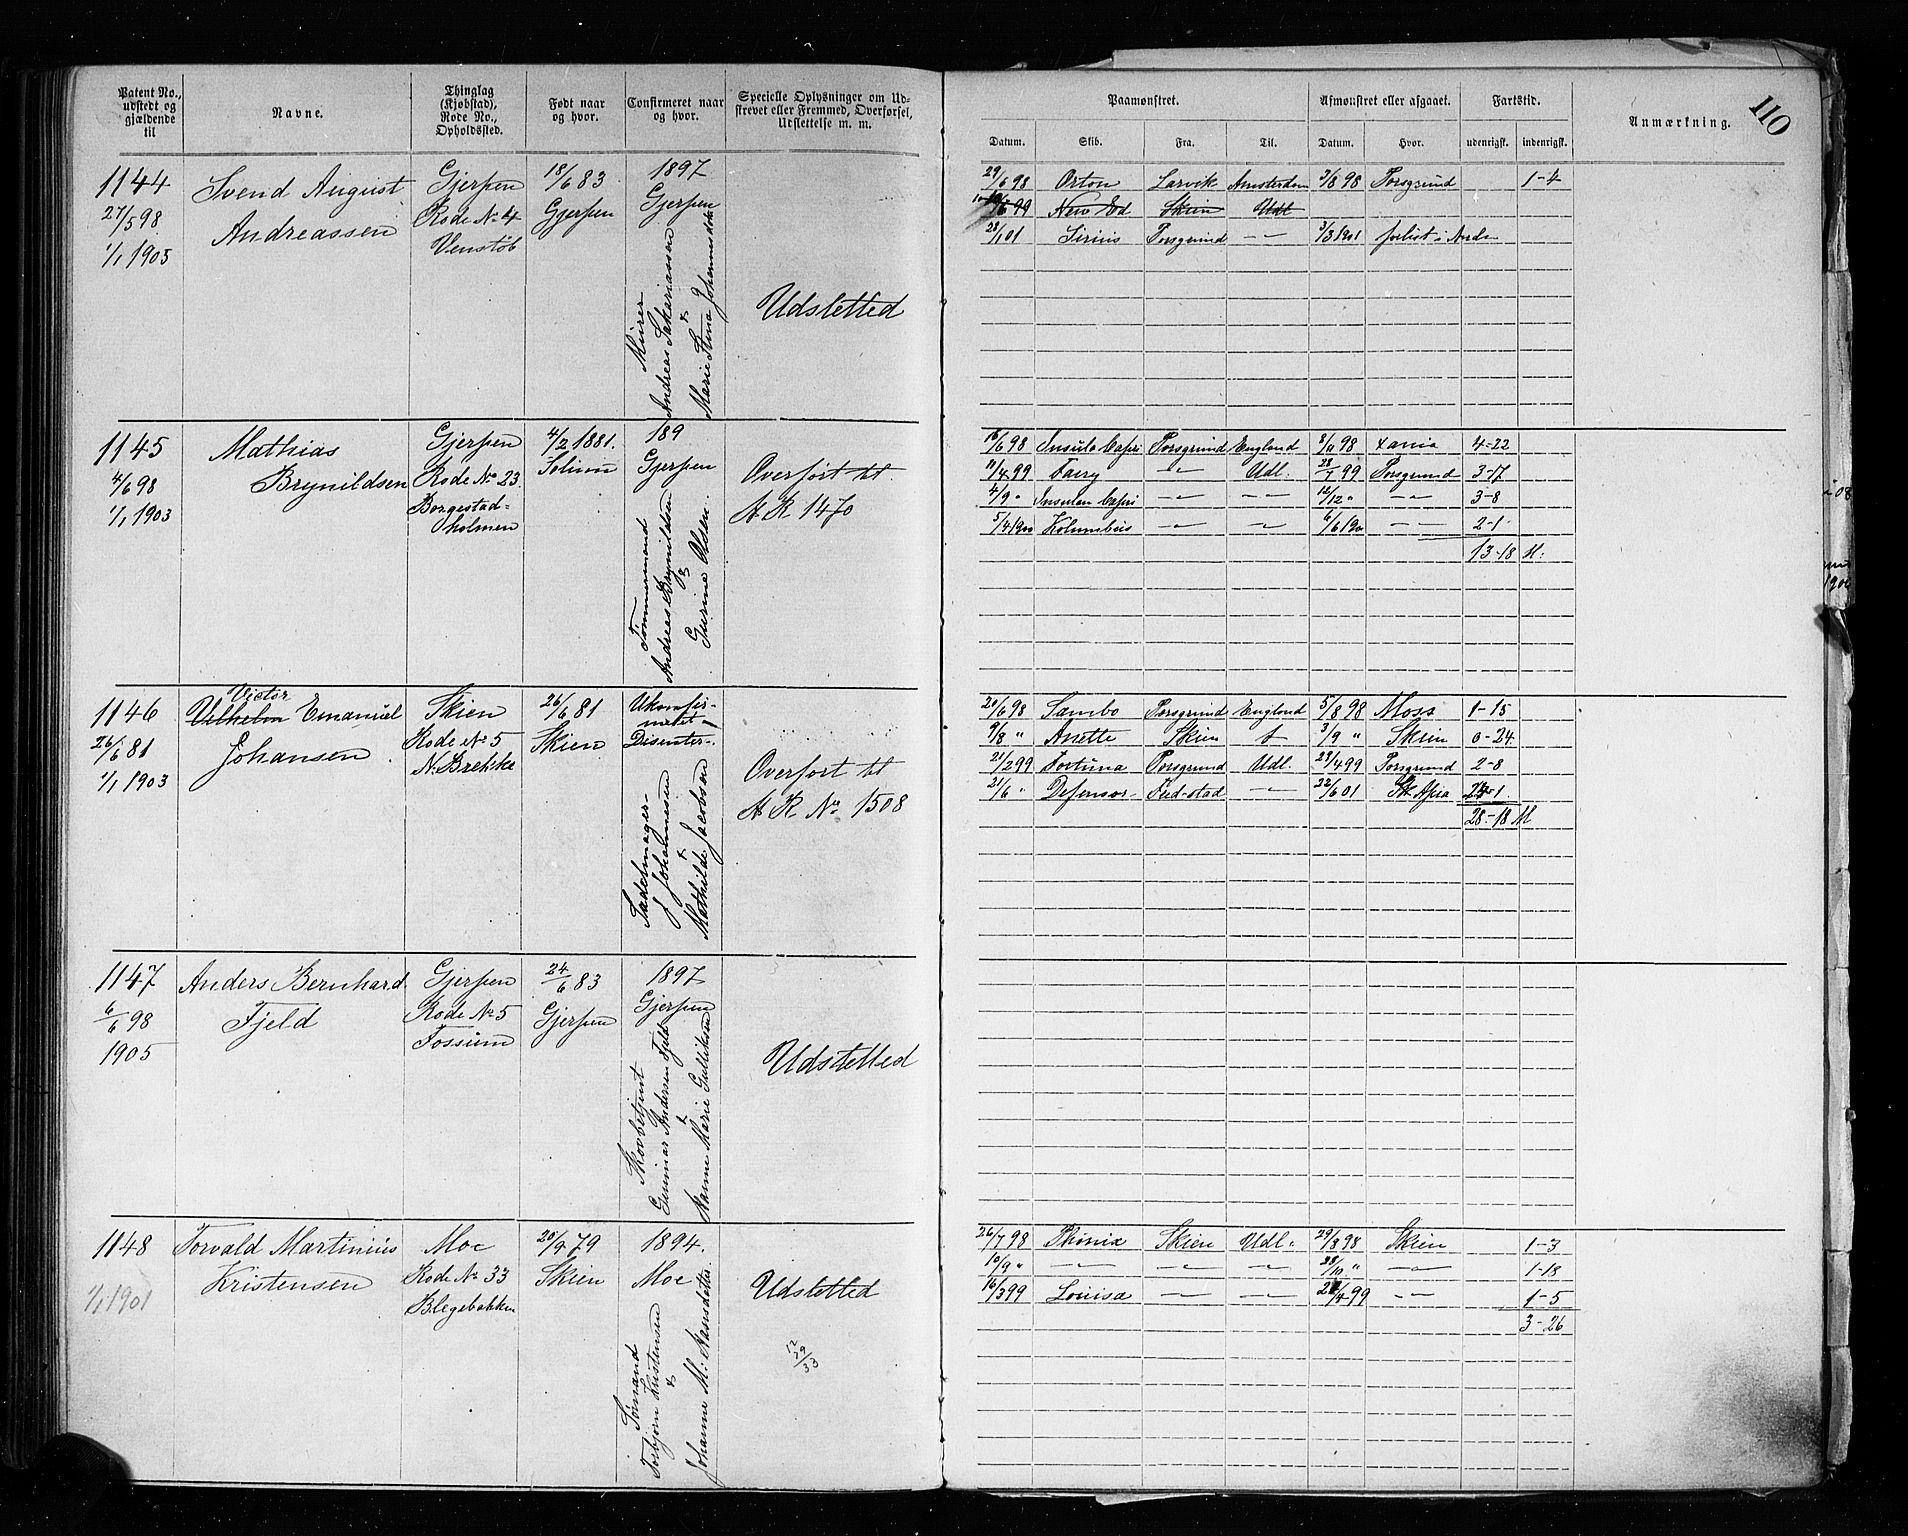 110
Patent No., udstedt og gjældende til
Navne.
Thinglag (Kjøbstad), Rode No., Opholdssted.
Født naar og hvor.
Confirmeret naar og hvor.
Specielle Oplysninger om Udskrevet eller Fremmed, Overførsel, Udslettelse m. m.
Paamønstret.
Afmønstret eller afgaaet.
Fartstid.
Anmærkning.
Datum.
Skib.
Fra.
Til.
Datum.
Hvor.
udenrigsk.
indenrigsk.
1144
27/5 98
1/1 1905
Svend August
Andreassen
Gjerpen
Rode No 4
Venstøb
18/6 83
Gjerpen
1897
Gjerpen
Murer
Andreas Sakariassen
&
Marie Stina Johannesdatter
Udsletted
29/6 98 Orton Larvik Amsterdam 3/8 98 Porsgrund 1-4
New Ed Skien Udl
28/1 01 Sirius Porsgrund -"- 3/3 1901 forlist i
1145
4/6 98
1/1 1903
Mathias
Brynildsen
Gjerpen
Rode No 23
Borgestad-
holmen
4/2 1881.
Solum
189
Gjerpen
Tømmermand
Andreas Brynildsen
&
Gurine Olsen
Overført til
A R 1470
16/6 98 Insula Capri Porsgrund England 8/11 98 Xania 4-22
11/4 99 Farry -"- Udl. 28/7 99 Porsgrund 3-17
4/9 " Insulan Capri -"- -"- 12/12 " -"- 3-8
5/4 1900 Kolumbus -"- -"- 6/6 1900 -"- 2-1
13-18 M:
1146
26/6 81
1/1 1903
Victor
Vilhelm Emanuel
Johansen
Skien
Rode No 5
N. Brekke
26/6 81
Skien
Ukonfir-
meret
Disenter-
Sadelmager-
J Johannesen
&
Mathilde Jacobsen
Overført til
A R No 1508
20/6 98 Sambo Porsgrund England 5/8 98 Moss 1-15
9/8 " Anette Skien 3/9 " Skien 0-24
21/2 99 Fortuna Porsgrund Udl. 29/4 99 Porsgrund 2-8
21/6 " Defensor Fred-stad -"- 22/6 01 Apia 24-1
28-18 M
1147
6/6 98
1905
Anders Bernhard
Fjeld
Gjerpen
Rode No 5
Fossum
24/6 83
Gjerpen
1897
Gjerpen
Skovbetjent
Gunnar Andersen Fjeld
&
Karen Marie Gulliksen
Udslettet
1148
1/1 1901
Torvald Martinius
Kristensen
Moe
Rode No 33
Blegebakken
20/9 79
Skien
1894.
Moe
Sømand
Torbjørn Kristensen
&
Johanne M. Rasmsdatter
Udslettet
12
29/33
26/7 98 Phønix Skien Udl. 29/8 98 Skien 1-3
10/9 " -"- -"- -"- 28/10 " -"- 1-18
16/3 99 Louisa -"- -"- 21/4 99 -"- 1-5
3-26